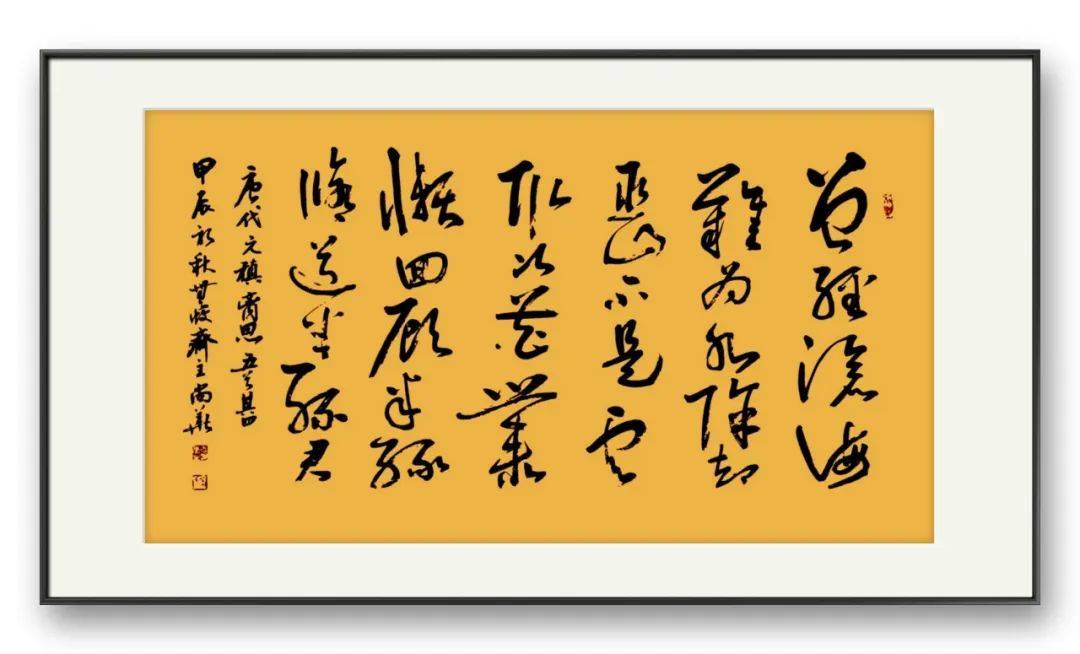 曾經滄海
難为水除却
巫山不是雲
取次花叢
懶回顧半緣
脩道半緣君
唐代元稹离思五首其四
甲辰初秋齋主尚